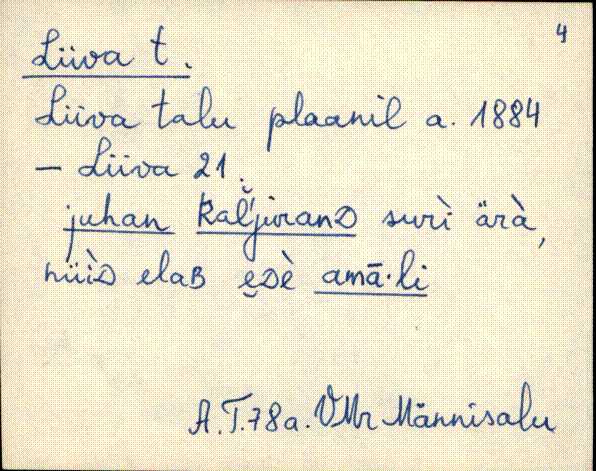 4
Liiva t.
Liiva talu plaanil a. 1884
– Liiva 21.
juhan kaľjuranD surì ärà,
nüìD elaB e̬Dè amā·li
A.T.78a. VMr Männisalu